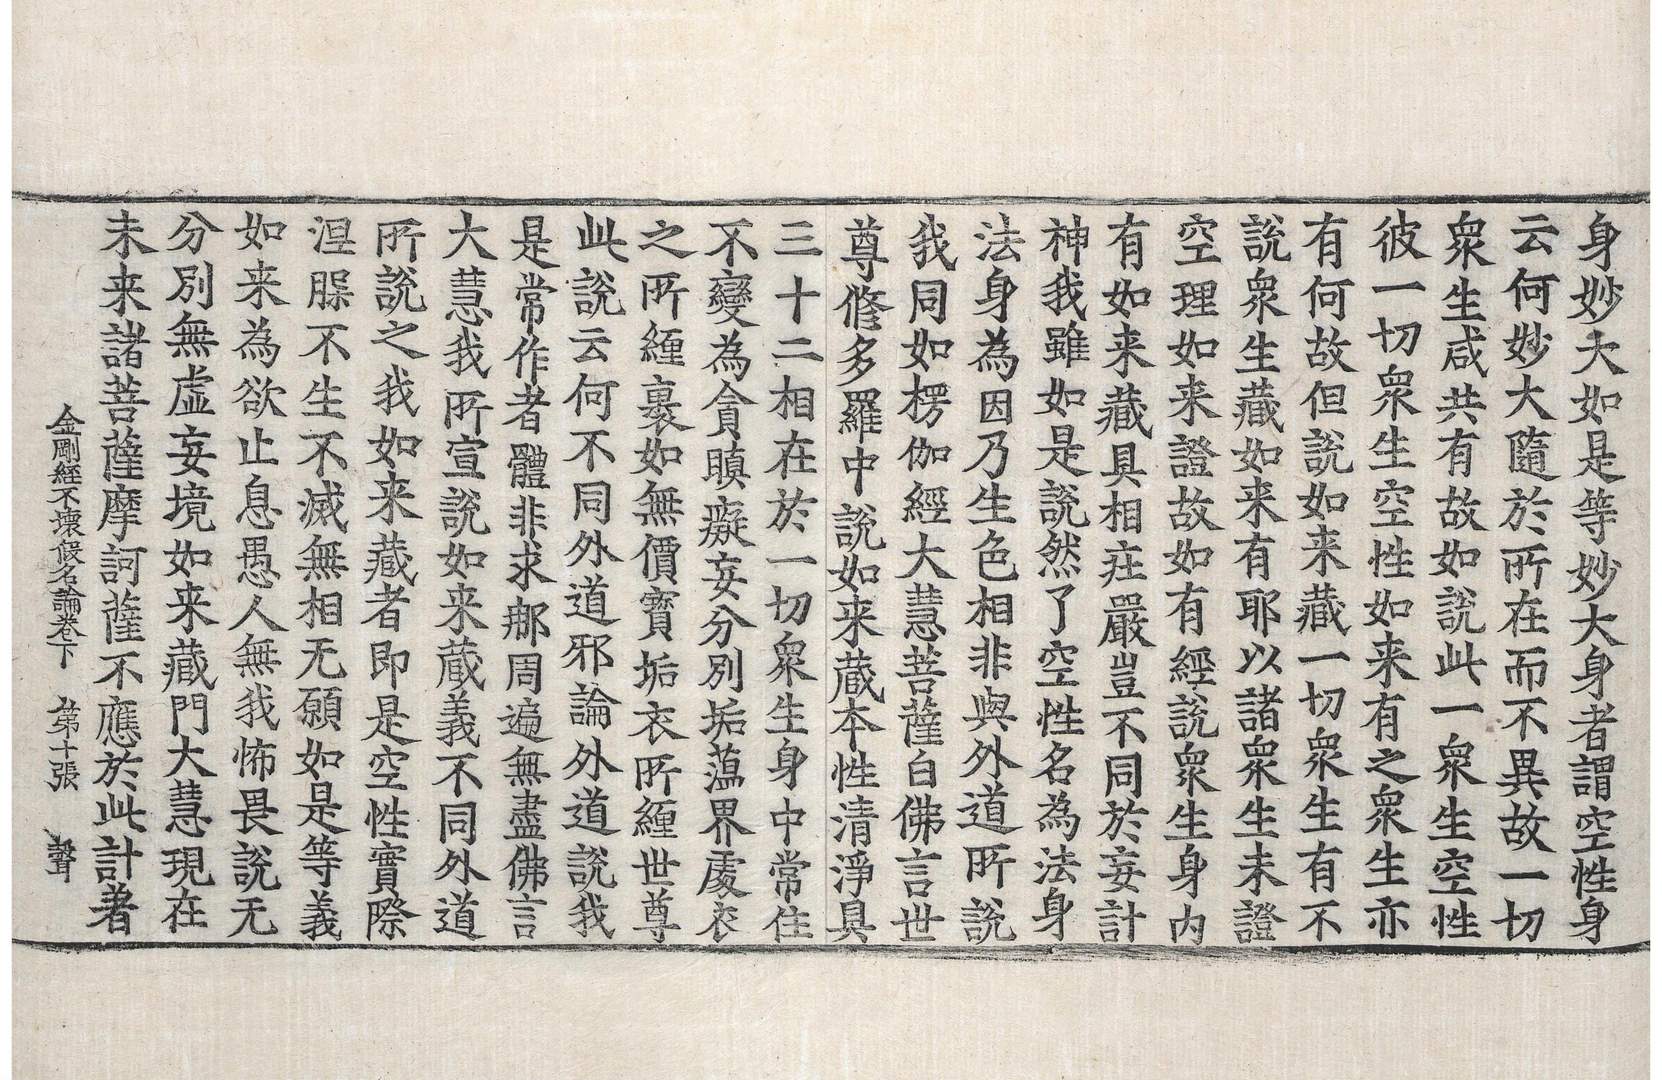 身妙大如是等妙大身者謂空性身
云何妙大隨於所在而不異故一切
衆生咸共有故如說此一衆生空性
彼一切衆生空性如来有之衆生亦
有何故但說如来藏一切衆生有不
說衆生藏如来有耶以諸衆生未證
空理如来證故如有經說衆生身内
有如来藏具相㽵嚴豈不同於妄計
神我雖如是說然了空性名為法身
法身為因乃生色相非與外道所說
我同如楞伽經大慧菩薩白佛言世
尊修多羅中說如来蔵本性清淨具
三十二相在於一切衆生身中常住
不變為貪瞋癡妄分別垢薀界處衣
之所纏裹如無價寶垢衣所纏世尊
此說云何不同外道邪論外道說我
是常作者體非求那周遍無盡佛言
大慧我所宣說如来蔵義不同外道
所說之我如来藏者即是空性實際
涅槃不生不滅無相无願如是等義
如来為欲止息愚人無我怖畏說无
分別無虛妄境如来藏門大慧現在
未来諸菩薩摩訶薩不應於此計著
金剛經不壞假名論卷下 第十張 聲